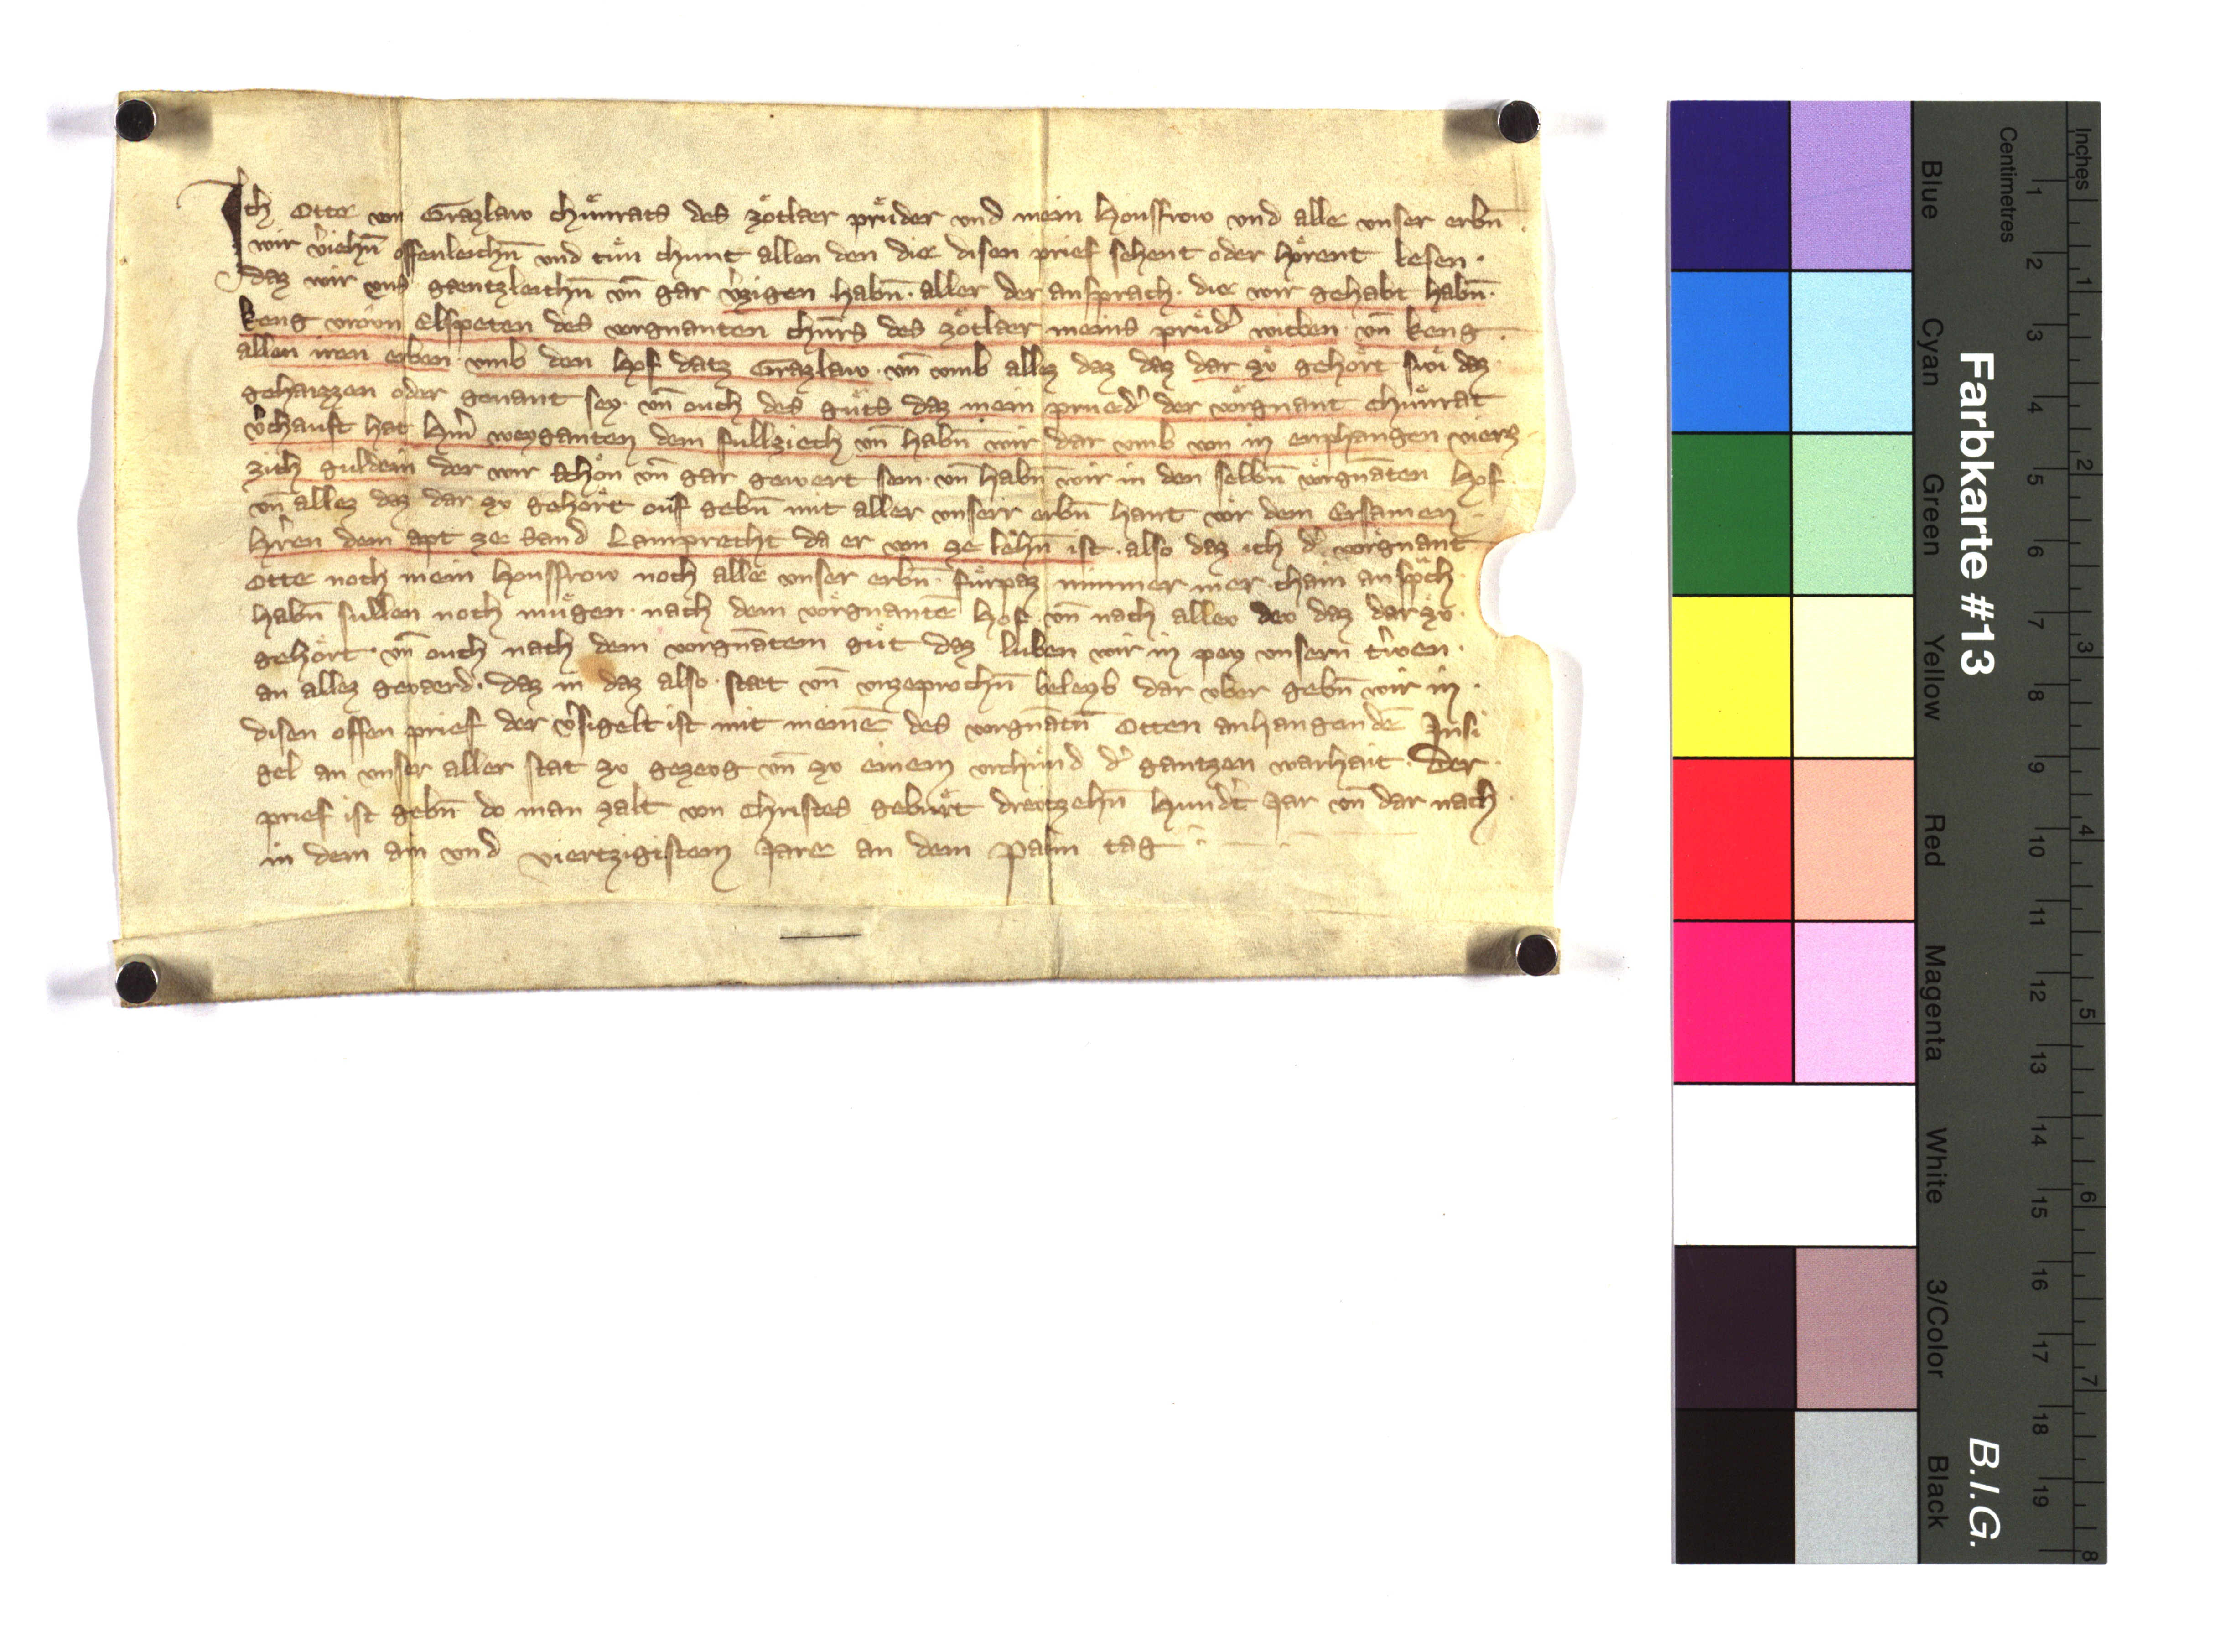 Ich Otte von Grazlaw chuͤnrats des zoͤtlaer pruͤder vnd mein Housfrow vnd alle vnser erbn̄
wir v̓iehn̄ offenleichn̄ vnd tuͤn chunt allen den die disen prief sehent oder hoͤrent lesen·
daz wir vns gaentzleichn̄ vn̄ gar v̓zigen habn̄· aller der ansprach· die wir gehabt habn̄·
keng vrown Elspeten des vorgnanten chuͤnrs des zoͤtlaer meins pruͤd̓ witben· vn̄ keng
allen iren erben· vmb den Hof datz Grazlaw· vn̄ vmb allez daz daz dar zv gehoͤrt swi daz
gehaizzen oder genant sey· vn̄ ouch des guͤts daz mein prued̓ der vorgnant chuͤnrat
v̓chauft hat Hm̓ weyganten dem fullziech vn̄ habn̄ wir dar vmb von in enphangen vierz
zich guldein der wir schon vn̄ gar gewert sein· vn̄ habn̄ wir in den selbn̄ vorgnāten Hof
vn̄ allez daz dar zv gehoͤrt ouf gebn̄ mit aller vnserr erbn̄ hant vor dem Ersamen
Hr̓en dem apt ze Sand Lamprecht da er von ze lehn̄ ist· also daz ich d̓ vorgnant
Otte noch mein Housfrow noch alle vnser erbn̄· fuͤrpaz nimmer mer chain anspͣch
habn̄ sullen noch muͤgen· nach dem vorgnantē Hof vn̄ nach allev dev daz dar zv·
gehoͤrt· vn̄ ouch nach dem vorgnātem guͤt daz luben wir in pey vnsern tr̓wen·
an allez gevaerd· daz in daz also· staet vn̄ vnzeprochn̄ beleyb dar vber gebn̄ wir in·
disen offen prief der v̓sigelt ist mit meinē des vorgnātn̄ Otten anhangendē Insi
gel an vnser aller stat zv gezevg vn̄ zv einem vrchuͤnd d̓ gantzen warhait· Der·
prief ist gebn̄ do man zalt von Christes gebuͤrt drevtzehn̄ Hund̓t Jar vn̄ dar nach
in dem ain vnd viertzigistem Jare an dem Palm tag
Farbkarte #13
B.I.G.
Inches
Centimetres
1 2 3 4 5 6 7 8 9 10 11 12 13 14 15 16 17 18 19
1 2 3 4 5 6 7 8
Blue
Cyan
Green
Yellow
Red
Magenta
White
3/Color
Black